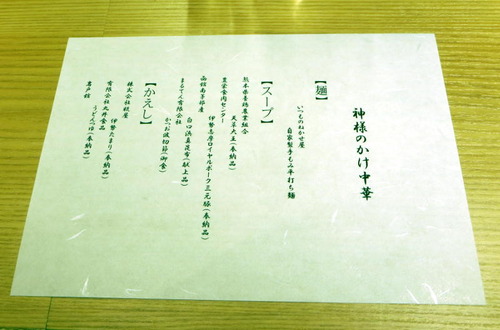 神様のかけ中華
【麺】
いつものねかせ屋
自家製手もみ平打ち麺
【スープ】
熊本県養鶏農業組合
天草大王(奉納品)
農業食肉センター
伊勢志摩ロイヤルポーク三元豚(奉納品)
函館南茅部産
白口浜真昆布(献上品)
まるてん有限会社
かつお波切節(御食)
【かえし】
株式会社糀屋
伊勢たまり(奉納品)
有限会社丸井食品
うどんつゆ(奉納品)